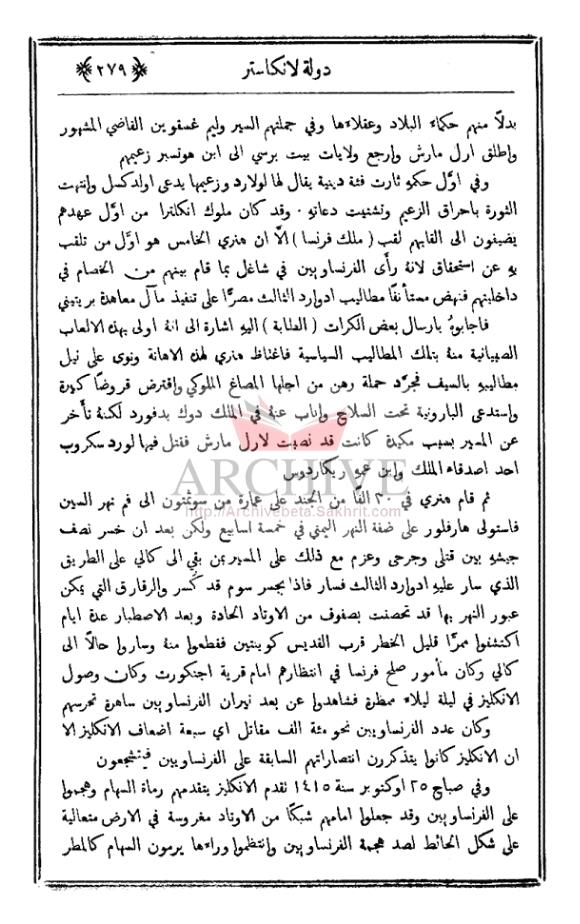 دولة لانكاستر
﴿٢٧٩﴾
بدلًا منهم حكماء البلاد وعقلاءها وفي جملتهم السير وليم غسقوين القاضي المشهور
وإطلق ارل مارش وإرجع ولايات بيت برسي الى ابن هوتسبر زعيمهم
وفي اوَّل حكمهِ ثارت فئة دينية يقال لها لولارد وزعيمها يدعى اولدكسل وإنتهت
الثورة باحراق الزعيم وتشتيت دعاتهِ ٠ وقد كان ملوك انكلترا من اوَّل عهدهم
يضيفون الى القابهم لقب ( ملك فرنسا ) الَّا ان هنري الخامس هو اوَّل من تلقب
بهِ عن استحقاق لانهُ رأَى الفرنساويين في شاغل بما قام بينهم من الخصام في
داخليتهم فنهض مستأنفًا مطاليب ادوارد الثالث مصرًّا على تنفيذ مآل معاهدة بريتيني
فاجابوهُ بارسال بعض الكرات ( الطابة ) اليهِ اشارة الى انهُ اولى بهذه الالعاب
الصبيانية منهُ بتلك المطاليب السياسية فاغتاظ هنري لهذه الاهانة ونوى على نيل
مطاليبهِ بالسيف فجرَّد حملة رهن من اجلها المصاغ الملوكي وإقترض قروضًا كبيرة
وإستدعى البارونية تحت السلاح وإناب عنهُ في الملك دوك بدفورد لكنهُ تأَخر
عن المسير بسبب مكيدة كانت قد نصبت لارل مارش فقتل فيها لورد سكروب
احد اصدقاء الملك وابن عمهِ ريكاردوس
ثم قام هنري في ٣٠ الفًا من الجند على عمارة من سوثمتون الى فم نهر السين
فاستولى هارفلور على ضفة النهر اليمنى في خمسة اسابيع ولكن بعد ان خسر نصف
جيشهِ بين قتلى وجرحى وعزم مع ذلك على المسير بمن بقي الى كالي على الطريق
الذي سار عليهِ ادوارد الثالث فسار فاذا بجسر سوم قد كُسر والرقارق التي يمكن
عبور النهر بها قد تحصنت بصفوف من الاوتاد الحادة وبعد الاصطبار عدة ايام
اكتشفوا ممرًّا قليل الخطر قرب القديس كوينتين فقطعوا منهُ وساروا حالًا الى
كالي وكان مأمور صلح فرنسا في انتظارهم امام قرية اجنكورت وكان وصول
الانكليز في ليلة ليلاء ممطرة فشاهدوا عن بعد نيران الفرنساويين ساهرة تحرسهم
وكان عدد الفرنساويين نحو مئة الف مقاتل اي سبعة اضعاف الانكليز الا
ان الانكليز كانوا يتذكرون انتصاراتهم السابقة على الفرنساويين فيتشجعون
وفي صباح ٢٥ اوكتوبر سنة ١٤١٥ تقدم الانكليز يتقدمهم رماة السهام وهجموا
على الفرنساويين وقد جعلوا امامهم شبكًا من الاوتاد مغروسة في الارض متعالية
على شكل الحائط لصد هجمة الفرنساويين وإنتظموا وراءها يرمون السهام كالمطر
ARCHIVE
http://Archivebeta.Sakhrit.com